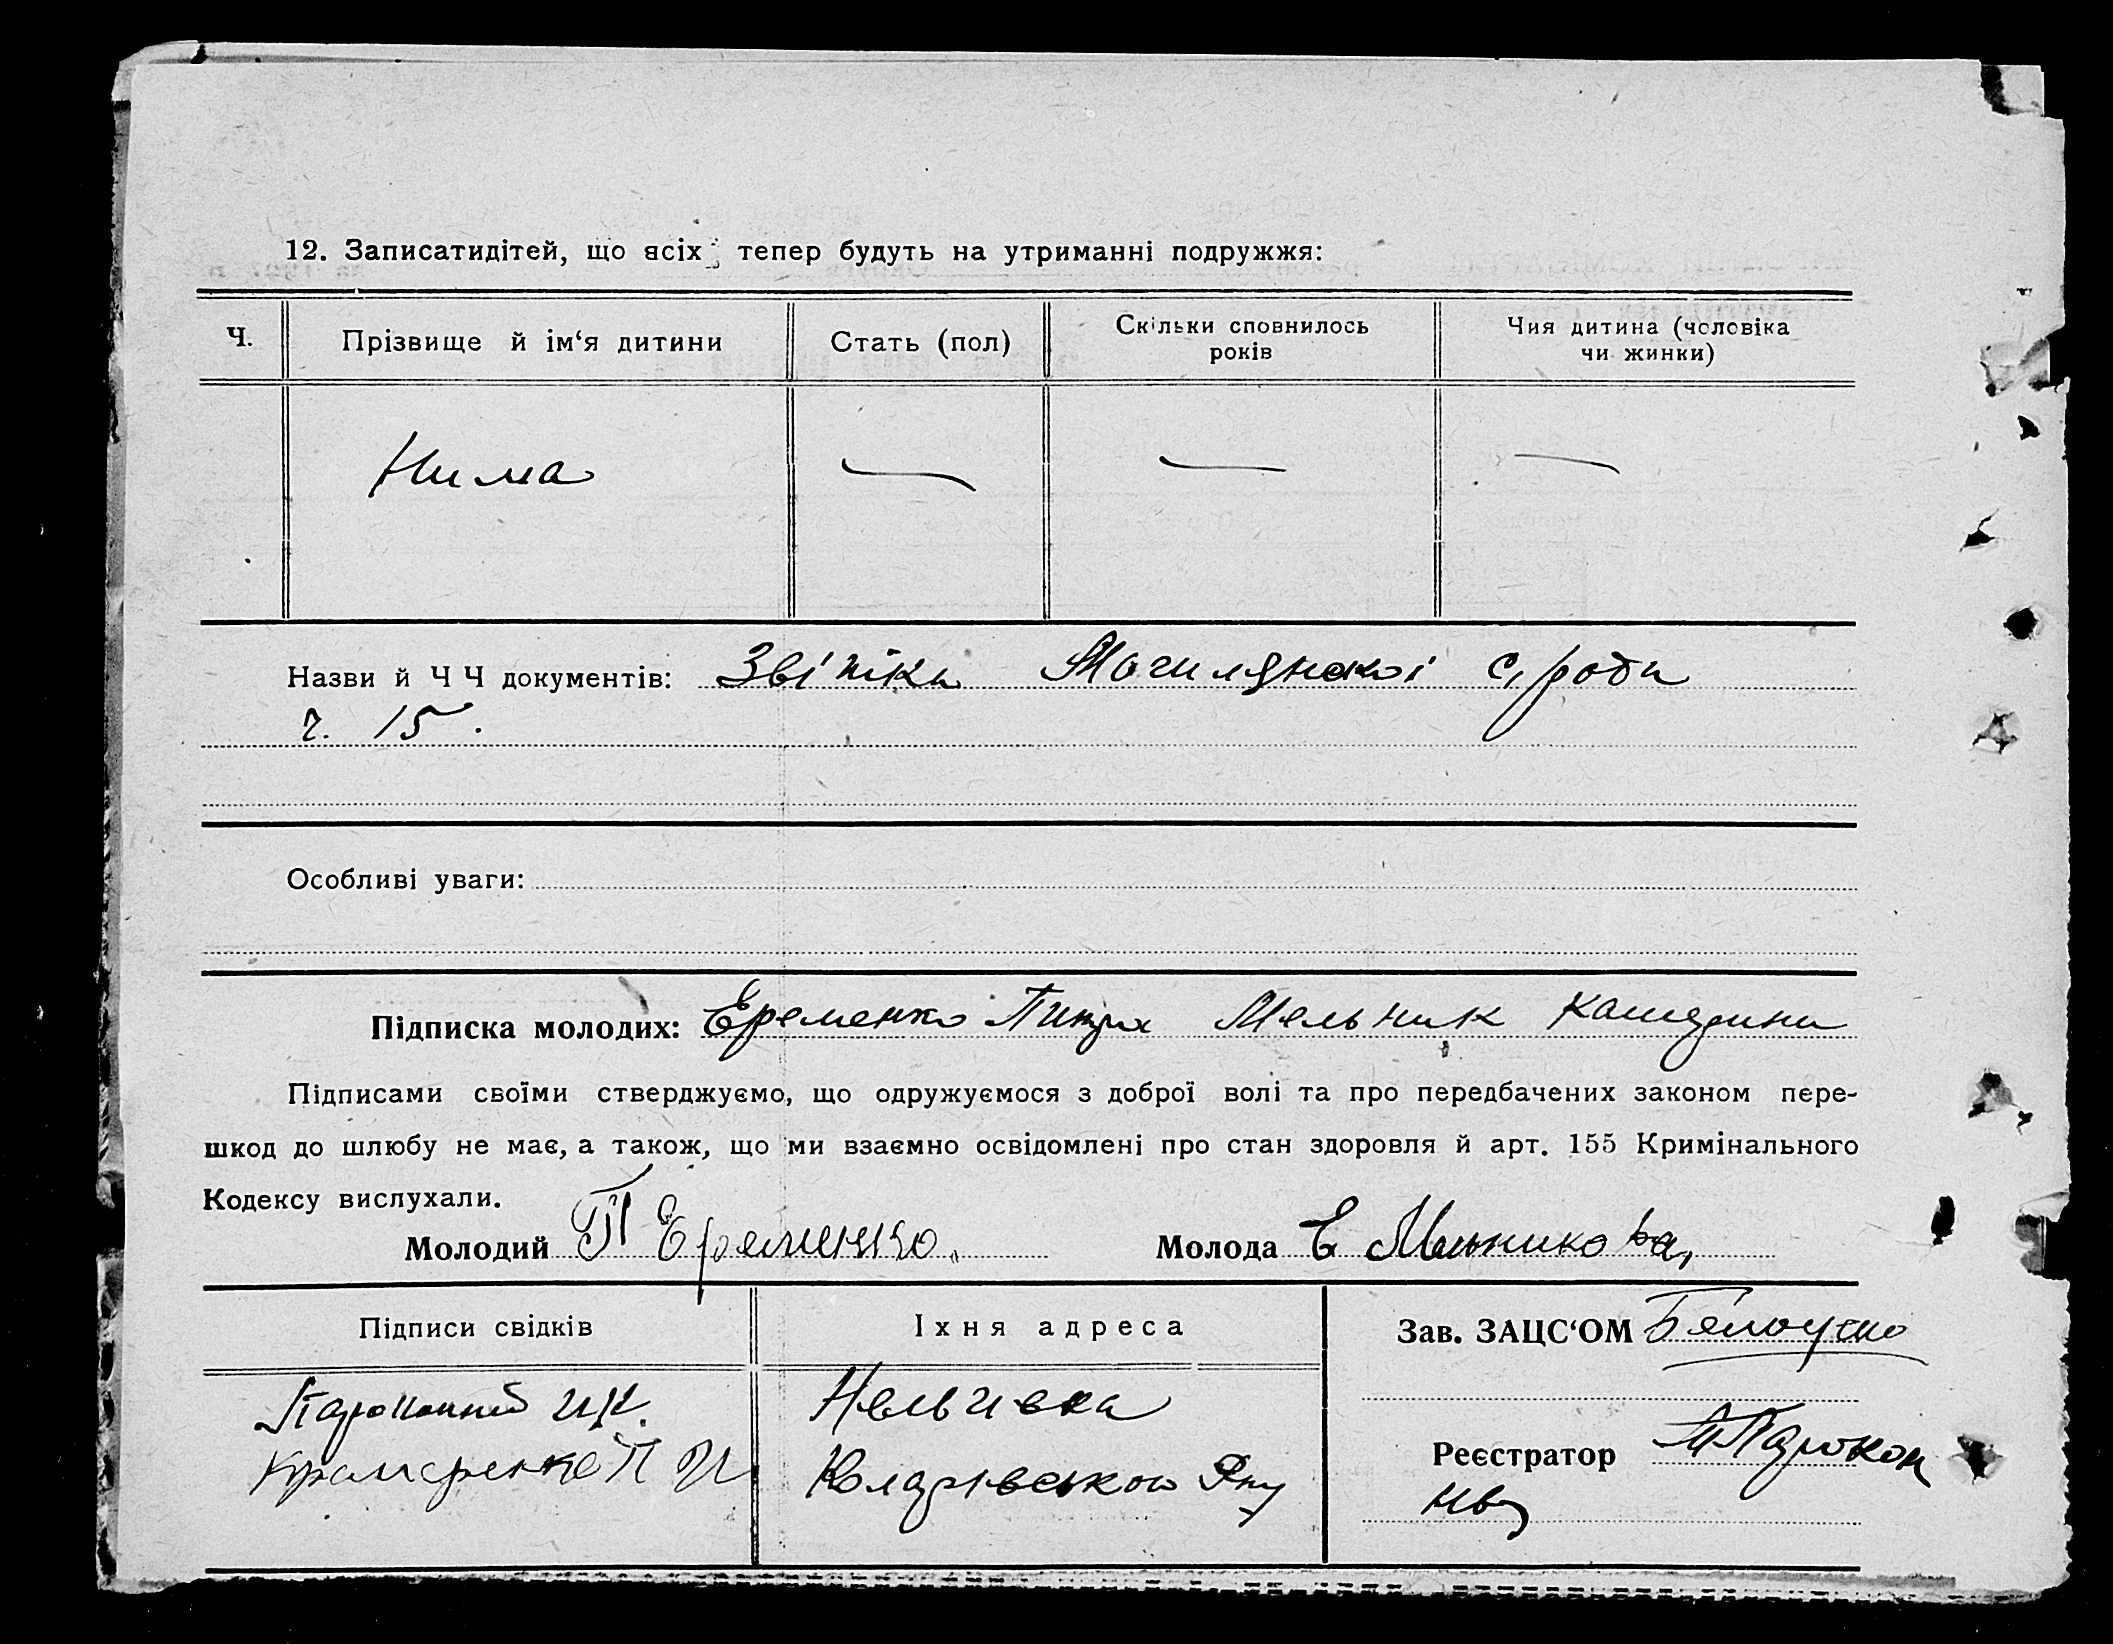 12. Записатидітей, що всіх тепер будуть на утриманні подружжя:
Ч. Прізвище й ім‘я дитини Стать (пол) Скільки сповнилось років Чия дитина (чоловіка чи жинки)
Нима — — —
Назви й Ч Ч документів: Звітка Могилянскоі с/ради
ч. 15.
Особливі уваги:
Підписка молодих: Еременко Питра Мельник
Підписами своїми стверджуємо, що одружуємося з доброї волі та про передбачених законом пере-
шкод до шлюбу не має, а також, що ми взаємно освідомлені про стан здоровля й арт. 155 Кримінального
Кодексу вислухали.
Молодий П Еременко Молода Е Мельникова
Підписи свідків Їхня адреса Зав. ЗАЦС‘ОМ
И К.
Крамаренко П И
Реєстратор